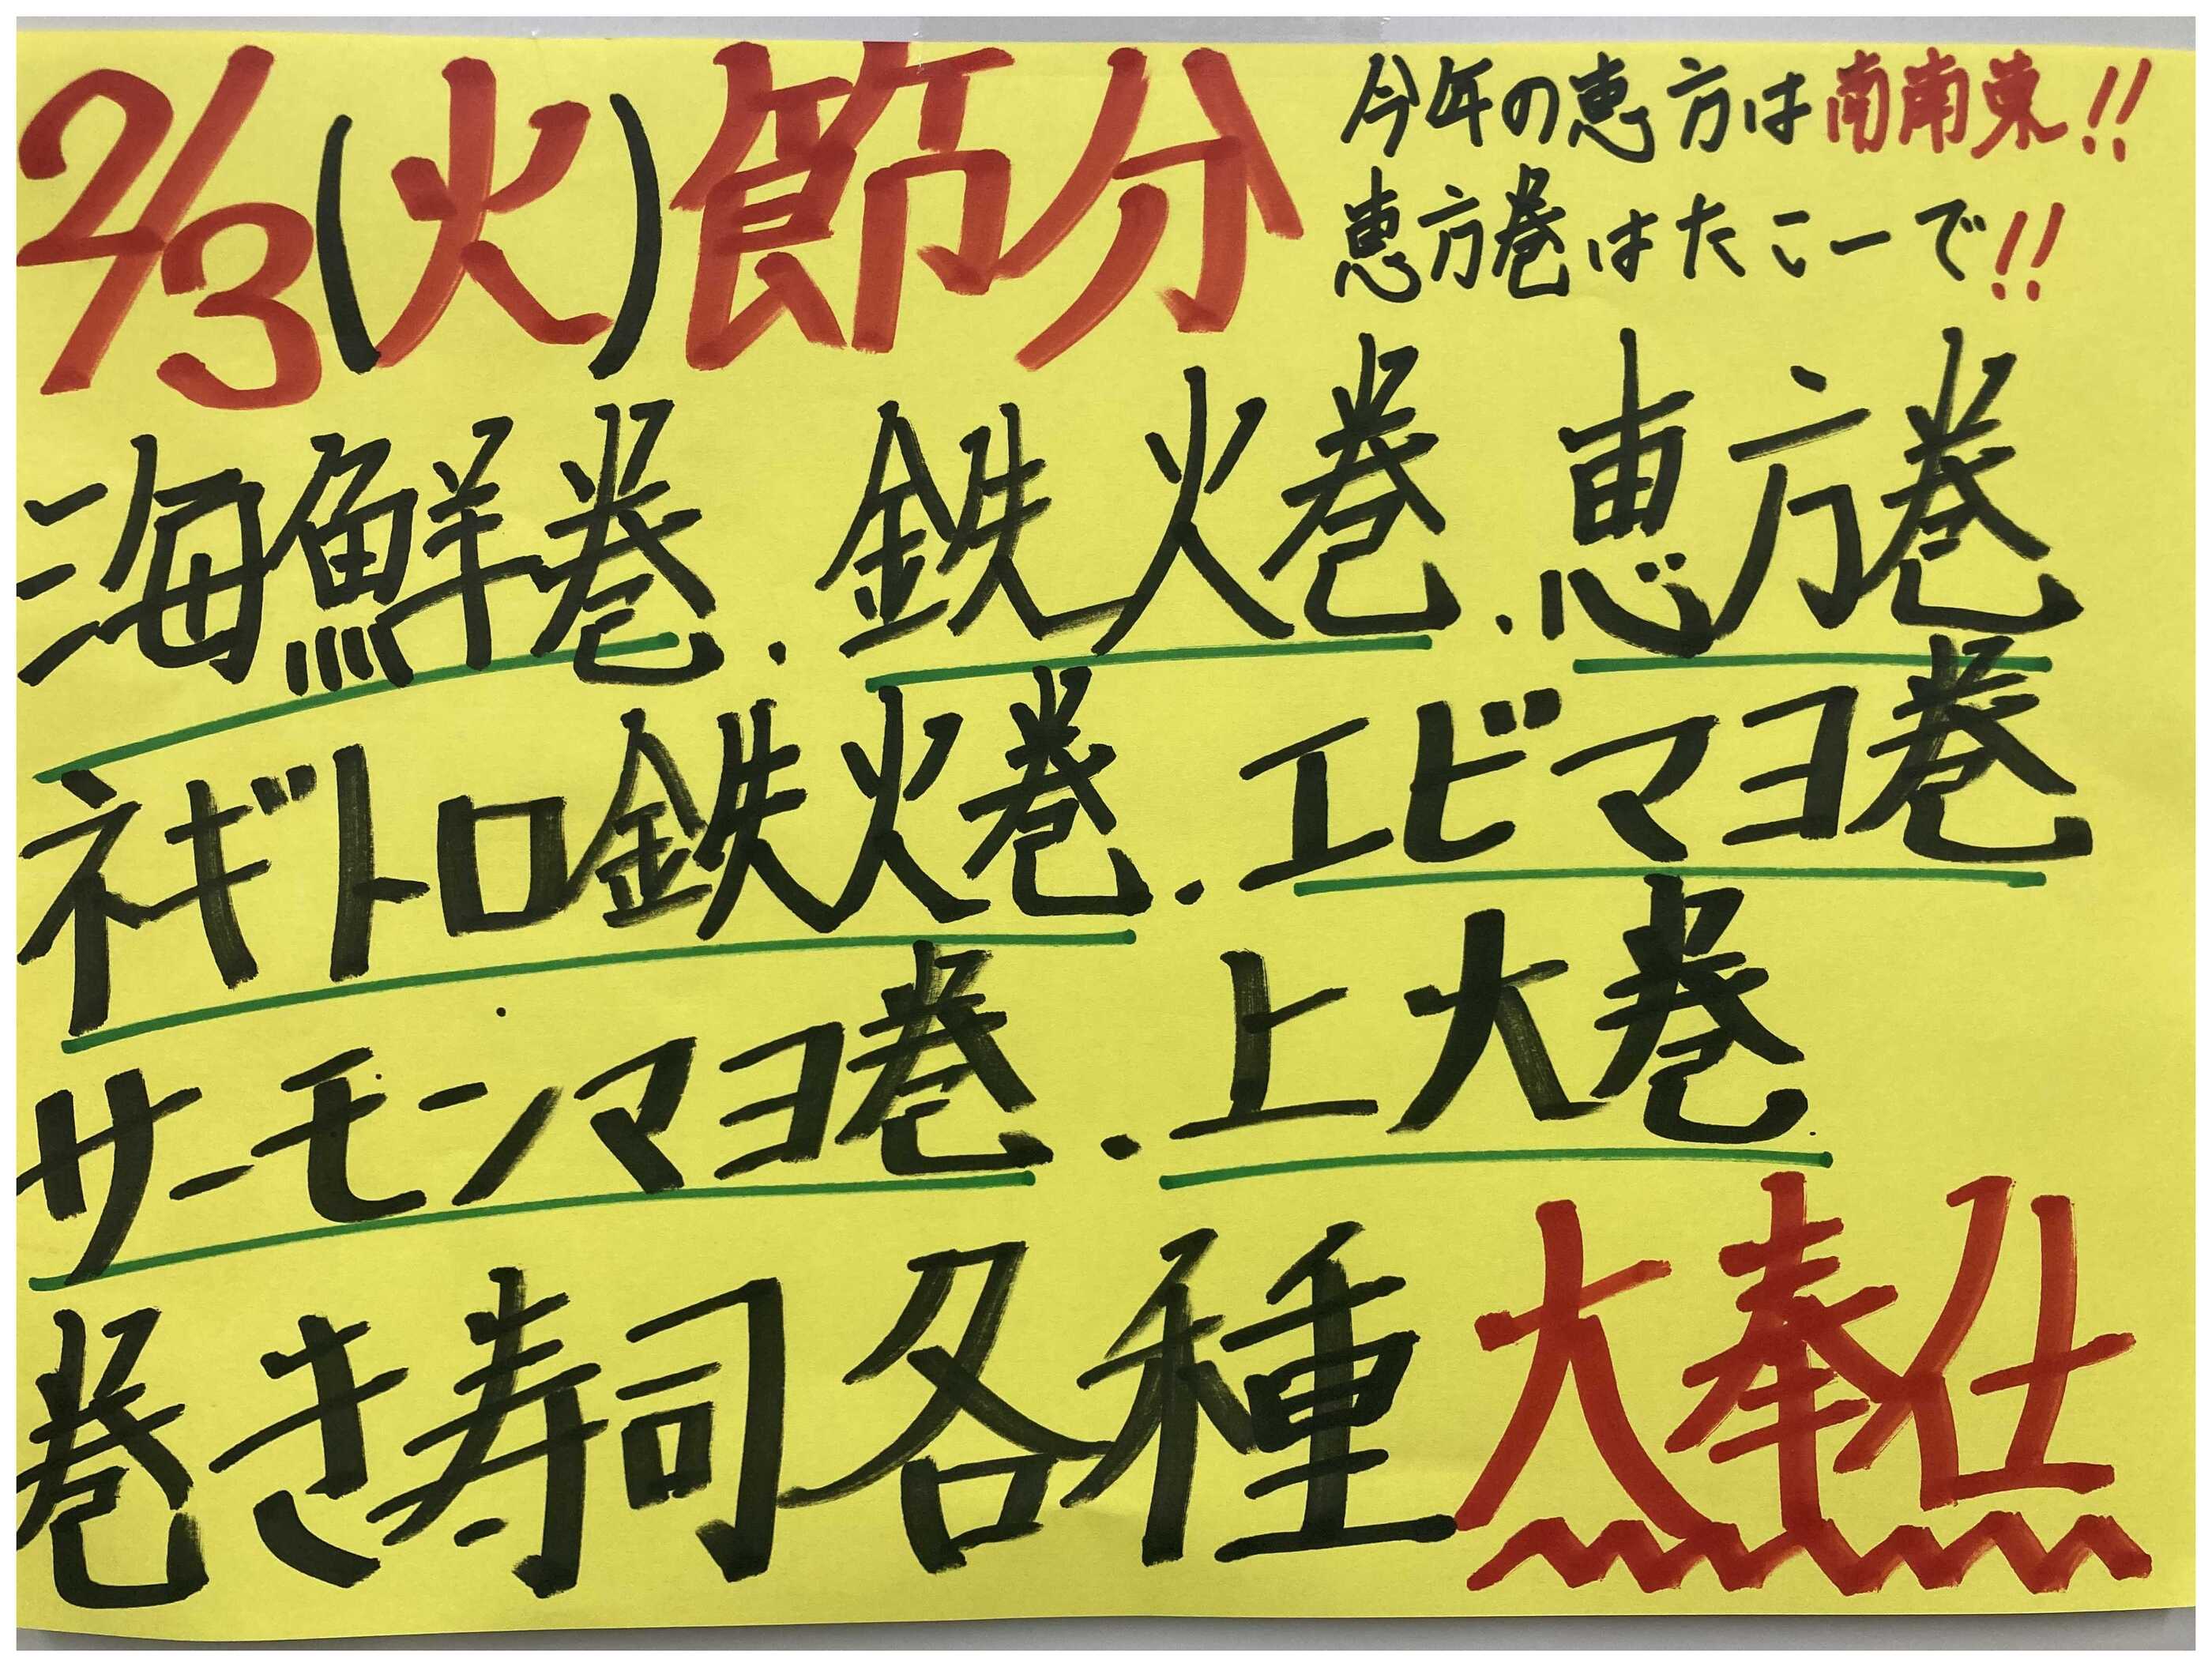 2/3(火)節分
今年の恵方は南南東!!
恵方巻はたこーで!!
海鮮巻.鉄火巻.恵方巻
ネギトロ鉄火巻.エビマヨ巻
サーモンマヨ巻.上大巻
巻き寿司各種大奉仕